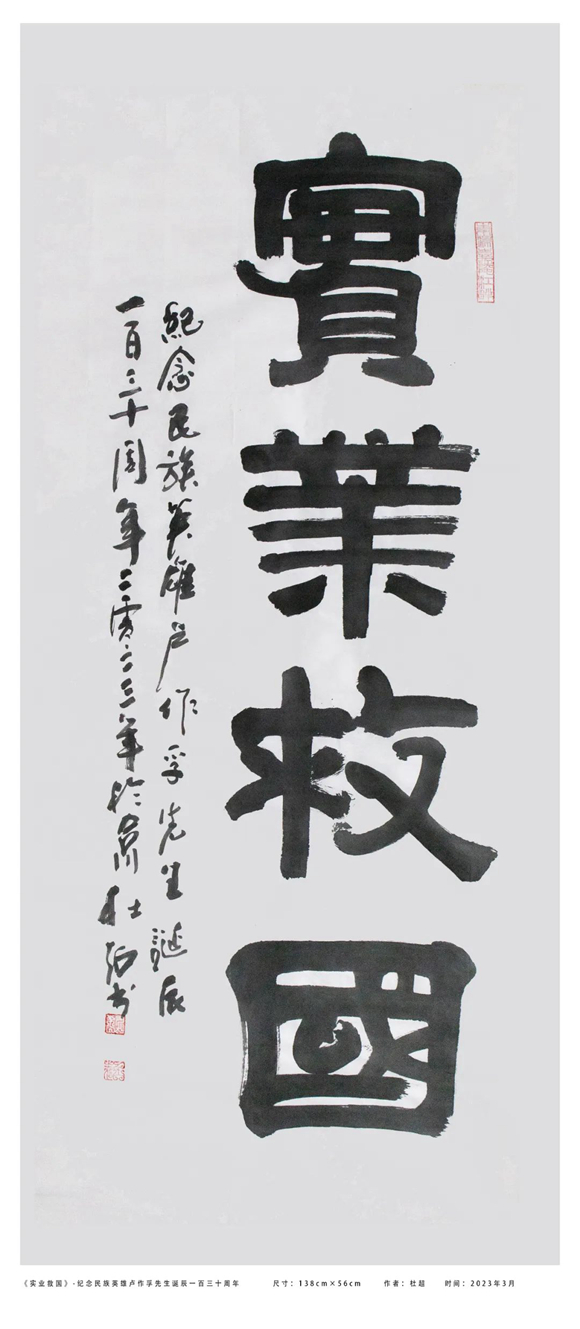 實業救國
紀念民族英雄卢作孚先生誕辰
一百三十周年二零二三年於京杜超书
《实业救国》-纪念民族英雄卢作孚先生诞辰一百三十周年 尺寸：138cm×56cm 作者：杜超 时间：2023年3月